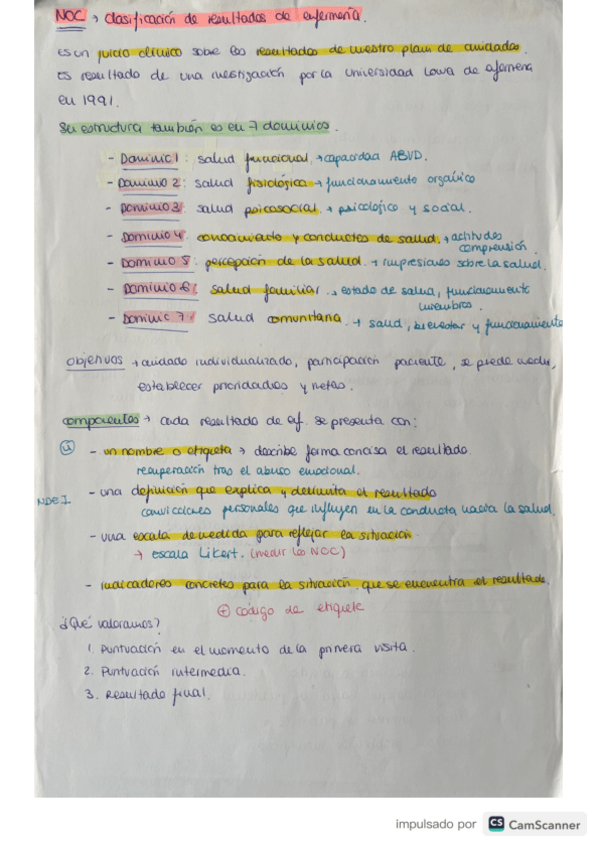 NOC → clasificación de resultados de enfermería.
es un juicio clínico sobre los resultados de nuestro plan de cuidados.
es resultado de una investigación por la Universidad Iowa de
en 1991.
Su estructura también es en 7 dominios.
- Dominio 1: salud funcional, → capacidad ABVD.
- Dominio 2: salud fisiológica → funcionamiento orgánico
- Dominio 3: salud psicosocial. → psicológico y social.
- Dominio 4: conocimiento y conductas de salud. → actitudes
comprensión.
- Dominio 5: percepción de la salud. → impresiones sobre la salud.
- Dominio 6: salud familiar. → estado de salud, funcionamiento
miembros.
- Dominio 7: salud comunitaria. → salud, bienestar y funcionamiento
objetivos → cuidado individualizado, participación paciente, se puede medir,
establecer prioridades y metas.
componentes → cada resultado de enf. se presenta con:
(4) - un nombre o etiqueta → describe forma concisa el resultado
recuperación tras el abuso emocional.
- una definición que explica y delimita el resultado
convicciones personales que influyen en la conducta hacia la salud.
- una escala de medida para reflejar la situación
→ escala Likert. (medir los NOC)
- indicadores concretos para la situación que se encuentra el resultado.
⊕ código de etiqueta
¿Qué valoramos?
1. Puntuación en el momento de la primera visita.
2. Puntuación intermedia.
3. Resultado final.
impulsado por CS CamScanner